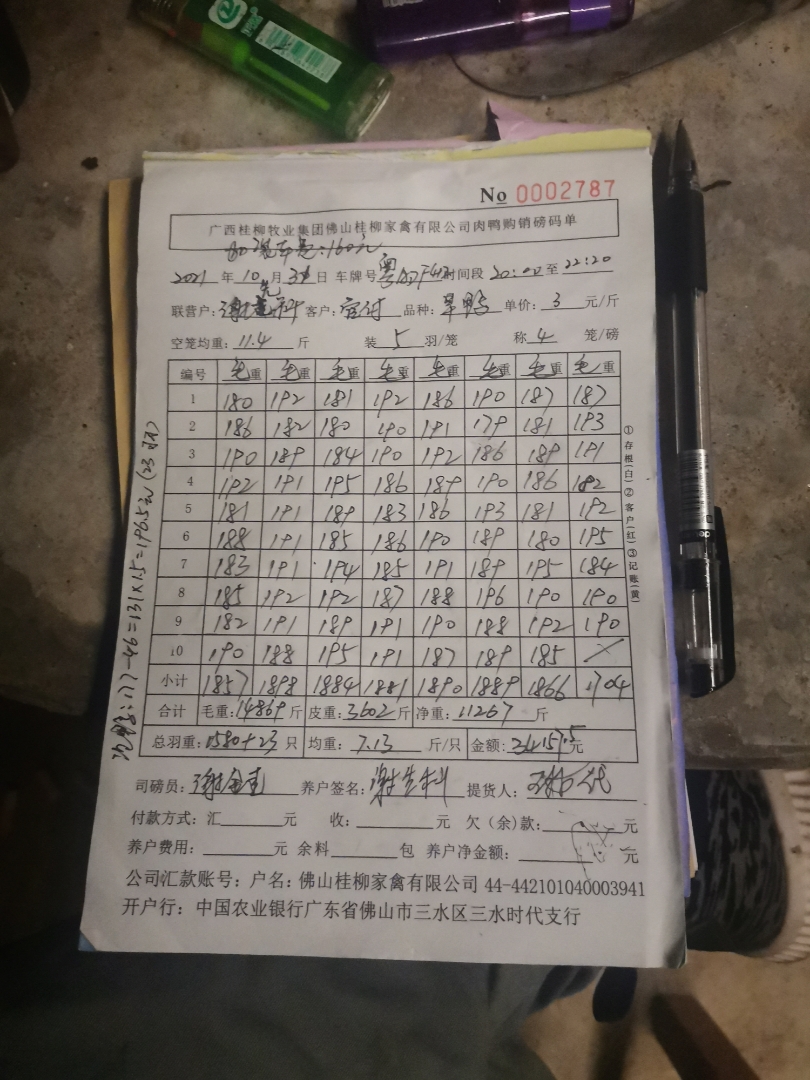 No 0002787
广西桂柳牧业集团佛山桂柳家禽有限公司肉鸭购销磅码单
:160元
2021年10月31日 车牌号 粤 时间段 20:00至22:20
联营户:谢 科 客户: 付 品种:旱鸭 单价:3元/斤
空笼均重:11.4斤 装5羽/笼 称4笼/磅
编号 毛重 毛重 毛重 毛重 毛重 毛重 毛重 毛重
1 180 192 181 192 186 190 187 187
2 186 182 180 190 191 179 181 193
3 190 189 184 190 192 186 189 191
4 192 191 195 186 189 190 186 182
5 181 191 189 183 186 193 181 192
6 188 191 185 186 190 189 180 195
7 183 191 194 185 191 189 195 184
8 185 192 192 187 188 196 190 190
9 182 191 189 191 190 188 192 190
10 190 188 195 191 187 189 185
小计 1857 1898 1884 1881 1890 1889 1866 1704
合计 毛重:14869斤 皮重:3602斤 净重:11267斤
总羽重:1580+23只 均重:7.13斤/只 金额: 元
司磅员:谢金 养户签名:谢 科 提货人:
付款方式:汇 元 收: 元 欠(余)款: 元
养户费用: 元 余料 包 养户净金额: 元
公司汇款账号:户名:佛山桂柳家禽有限公司 44-442101040003941
开户行:中国农业银行广东省佛山市三水区三水时代支行
①存根(白)②客户(红)③记账(黄)
:177-46=131×1.5=196.5元(23 )